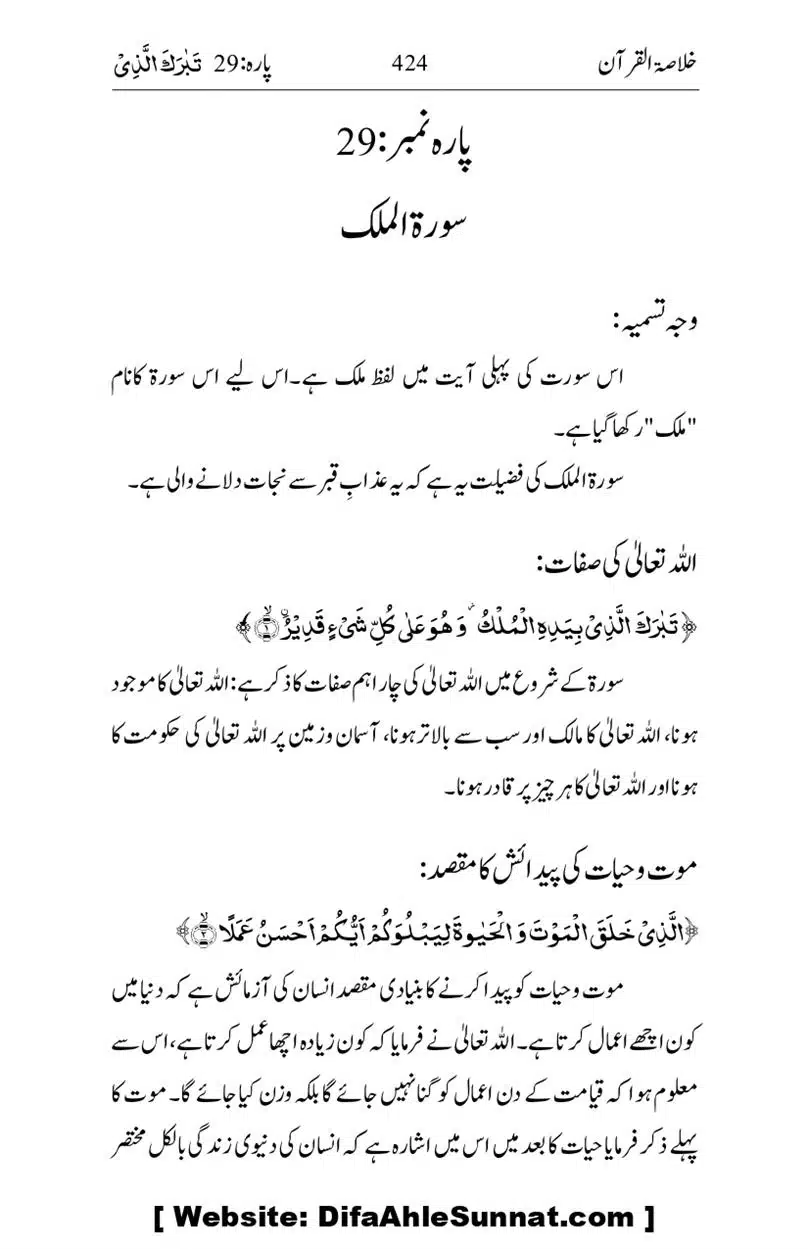 خلاصۃ القرآن 424 پارہ:29 تَبٰرَكَ الَّذِیْ
پارہ نمبر:29
سورۃ الملک
وجہ تسمیہ:
اس سورت کی پہلی آیت میں لفظ ملک ہے۔اس لیے اس سورۃ کانام
"ملک"رکھاگیاہے۔
سورۃ الملک کی فضیلت یہ ہے کہ یہ عذابِ قبر سے نجات دلانے والی ہے۔
اللہ تعالیٰ کی صفات:
﴿تَبٰرَكَ الَّذِیْ بِیَدِهِ الْمُلْكُ ۫ وَ هُوَ عَلٰی كُلِّ شَیْءٍ قَدِیْرُۨ ۙ﴿۱﴾﴾
سورۃ کے شروع میں اللہ تعالیٰ کی چار اہم صفات کا ذکر ہے: اللہ تعالیٰ کا موجود
ہونا، اللہ تعالیٰ کا مالک اور سب سے بالاتر ہونا، آسمان وزمین پر اللہ تعالیٰ کی حکومت کا
ہونا اور اللہ تعالیٰ کا ہر چیز پر قادر ہونا۔
موت وحیات کی پیدائش کا مقصد:
﴿الَّذِیْ خَلَقَ الْمَوْتَ وَ الْحَیٰوةَ لِیَبْلُوَكُمْ اَیُّكُمْ اَحْسَنُ عَمَلًا ؕ﴿۲﴾﴾
موت وحیات کو پیدا کرنے کا بنیادی مقصد انسان کی آزمائش ہے کہ دنیا میں
کون اچھے اعمال کرتا ہے۔ اللہ تعالیٰ نے فرمایا کہ کون زیادہ اچھا عمل کرتا ہے، اس سے
معلوم ہوا کہ قیامت کے دن اعمال کو گنا نہیں جائے گا بلکہ وزن کیا جائے گا۔ موت کا
پہلے ذکر فرمایا حیات کا بعد میں اس میں اشارہ ہے کہ انسان کی دنیوی زندگی بالکل مختصر
[ Website: DifaAhleSunnat.com ]